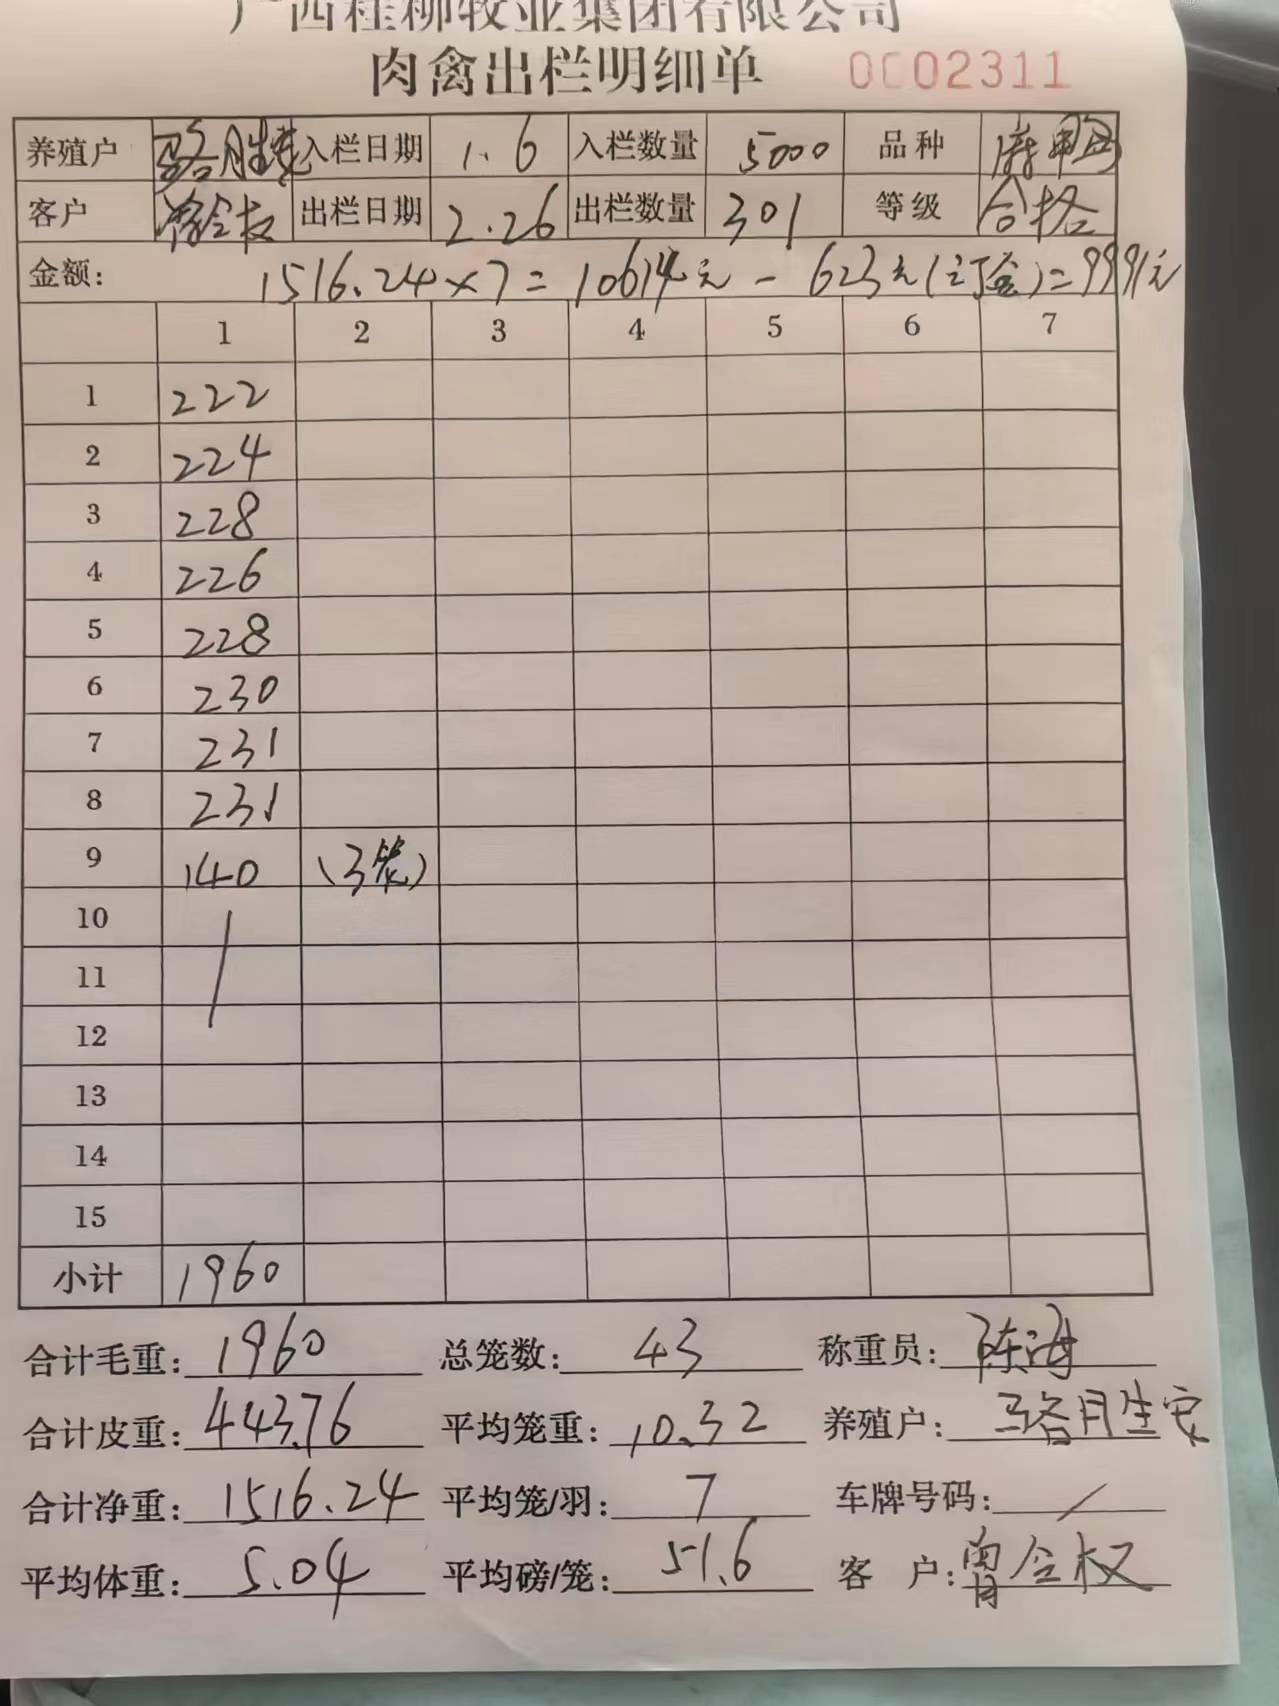 广西桂柳牧业集团有限公司
肉禽出栏明细单 0002311
养殖户 入栏日期 1.6 入栏数量 5000 品种 麻鸭
客户 曾全权 出栏日期 2.26 出栏数量 301 等级 合格
金额: 1516.24×7=10614元-623元(订金)=9991元
1 2 3 4 5 6 7
1 222
2 224
3 228
4 226
5 228
6 230
7 231
8 231
9 140 (3笼)
10
11
12
13
14
15
小计 1960
合计毛重: 1960 总笼数: 43 称重员: 陈海
合计皮重: 443.76 平均笼重: 10.32 养殖户:
合计净重: 1516.24 平均笼/羽: 7 车牌号码: /
平均体重: 5.04 平均磅/笼: 51.6 客 户: 曾全权